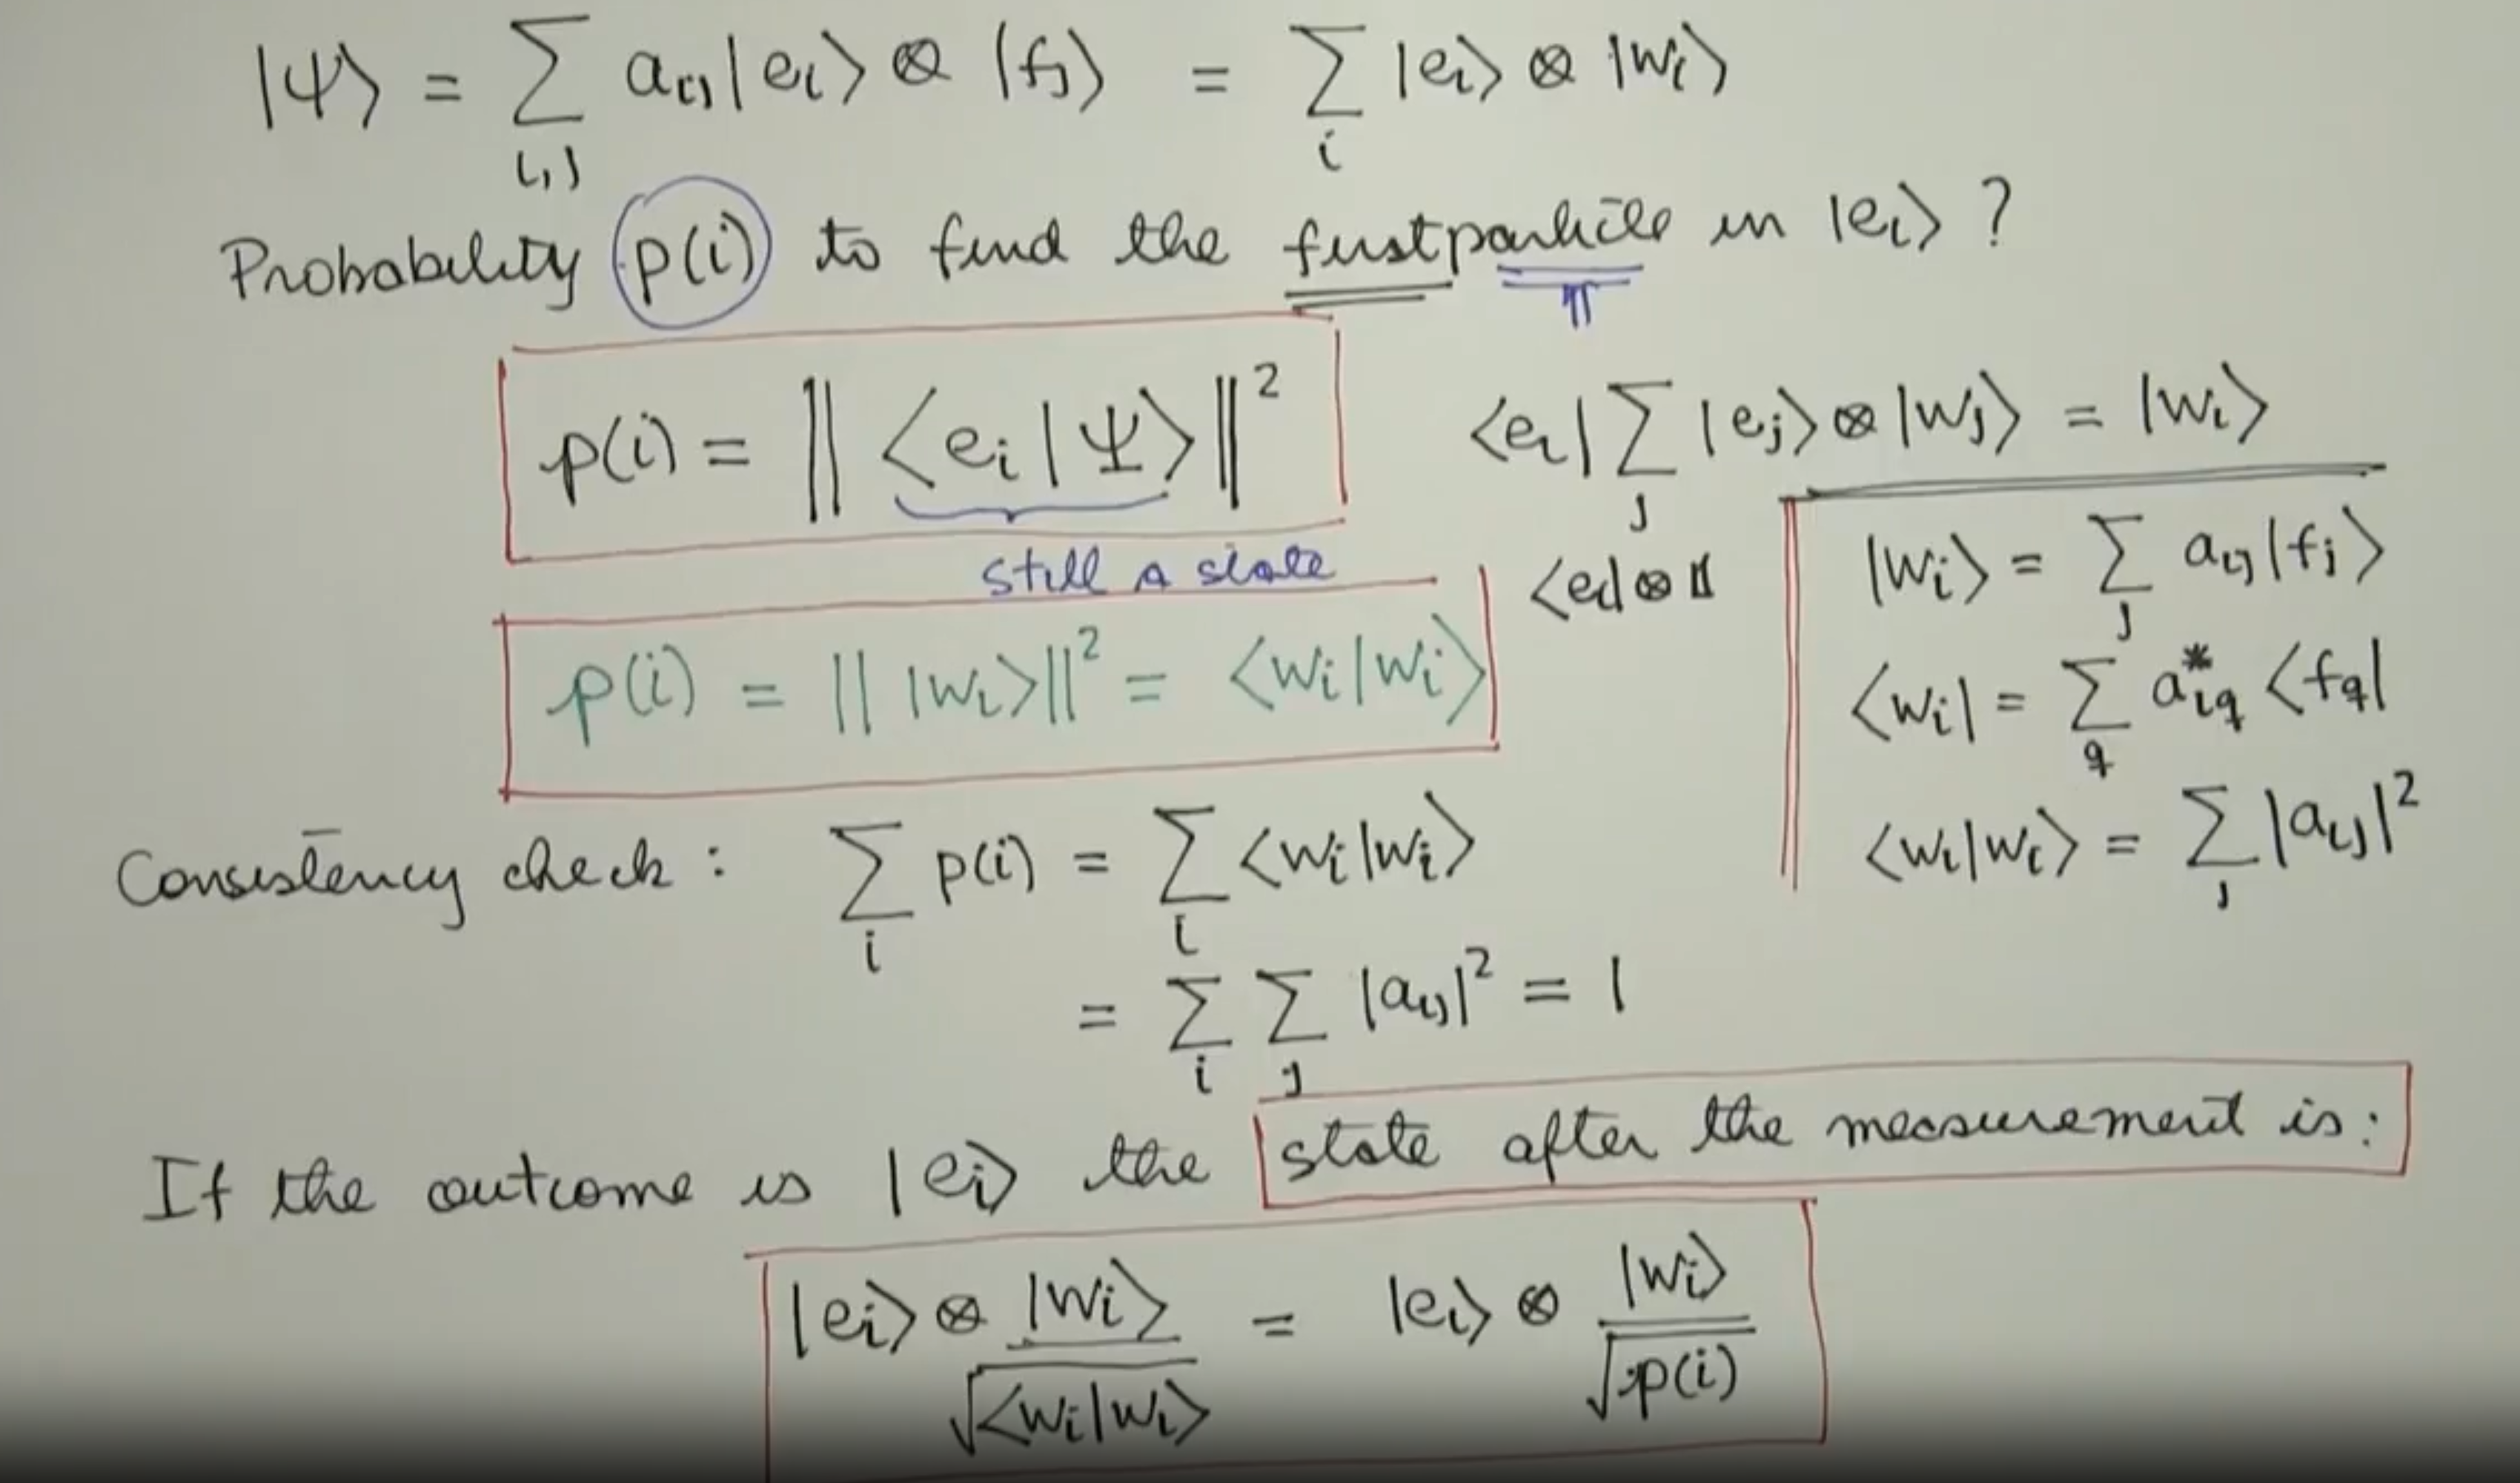 |Ψ⟩ = ∑_{i,j} a_{ij} |e_i⟩ ⊗ |f_j⟩ = ∑_i |e_i⟩ ⊗ |w_i⟩
Probability p(i) to find the first particle in |e_i⟩ ?
p(i) = || ⟨e_i | Ψ⟩ ||²
⟨e_i| ∑_j |e_j⟩ ⊗ |w_j⟩ = |w_i⟩
still a state
⟨e_i| ⊗ 𝟙
|w_i⟩ = ∑_j a_{ij} |f_j⟩
p(i) = || |w_i⟩ ||² = ⟨w_i|w_i⟩
⟨w_i| = ∑_q a*_{iq} ⟨f_q|
⟨w_i|w_i⟩ = ∑_j |a_{ij}|²
Consistency check : ∑_i p(i) = ∑_i ⟨w_i|w_i⟩
= ∑_i ∑_j |a_{ij}|² = 1
If the outcome is |e_i⟩ the state after the measurement is:
|e_i⟩ ⊗ |w_i⟩ / √⟨w_i|w_i⟩ = |e_i⟩ ⊗ |w_i⟩ / √p(i)